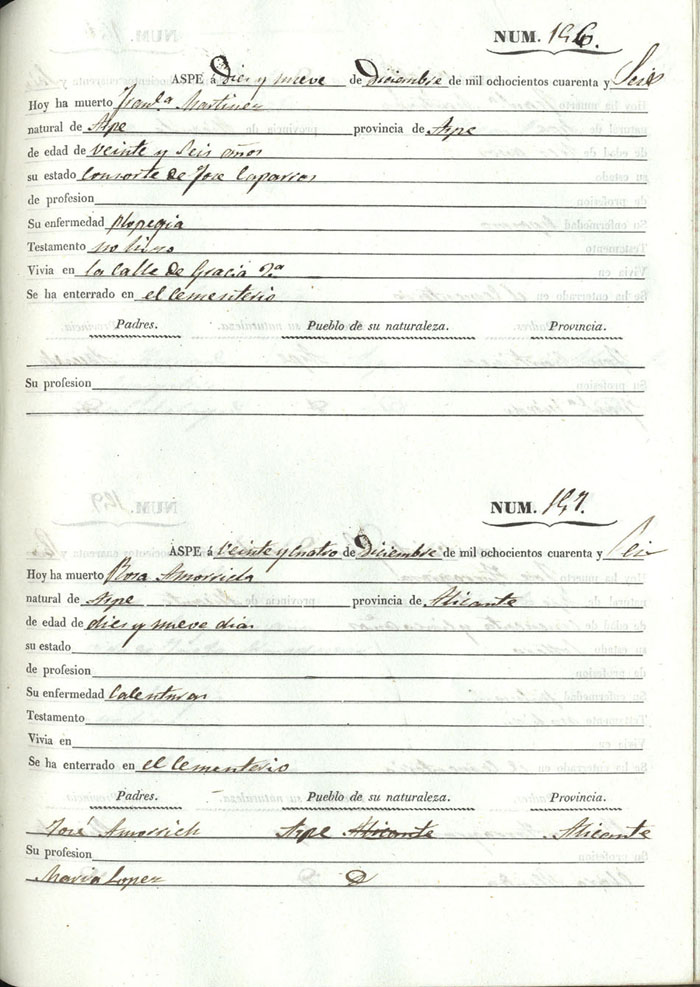 NUM. 196.
ASPE á Dies y nueve de Diciembre de mil ochocientos cuarenta y Seis
Hoy ha muerto Fran.ca Martinez
natural de Aspe provincia de Aspe
de edad de veinte y Seis años
su estado Consorte de Jose Caparros
de profesion
Su enfermedad Plopegia
Testamento no hizo
Vivia en la Calle de Gracia 2.a
Se ha enterrado en el Cementerio
Padres. Pueblo de su naturaleza. Provincia.
Su profesion
NUM. 197.
ASPE á Veinte y cuatro de Diciembre de mil ochocientos cuarenta y Seis
Hoy ha muerto Rosa
natural de Aspe provincia de Alicante
de edad de dies y nueve dias
su estado
de profesion
Su enfermedad Calenturas
Testamento
Vivia en
Se ha enterrado en el Cementerio
Padres. Pueblo de su naturaleza. Provincia.
José Amorrich Aspe Alicante Alicante
Su profesion
Maria Lopez D